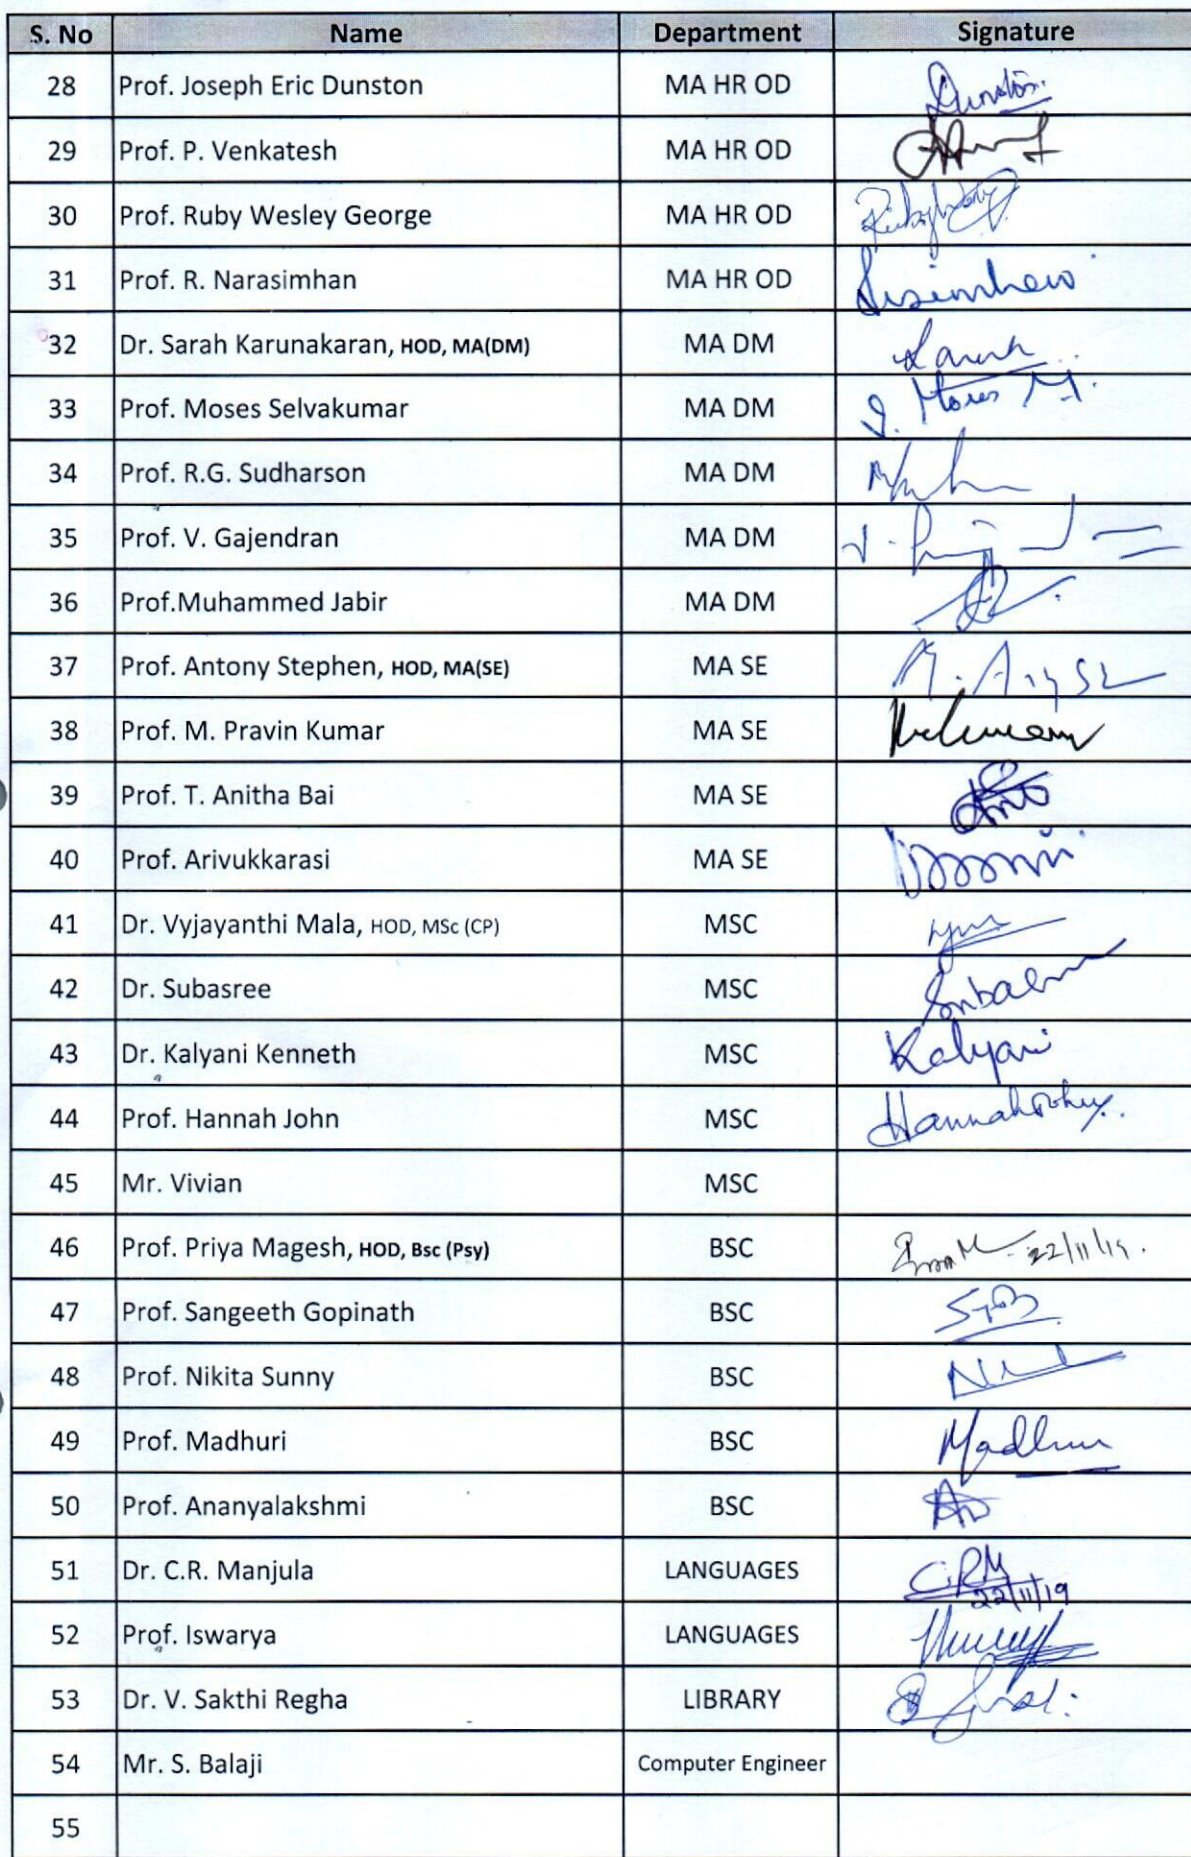 S. No Name Department Signature
28 Prof. Joseph Eric Dunston MA HR OD Dunston
29 Prof. P. Venkatesh MA HR OD
30 Prof. Ruby Wesley George MA HR OD
31 Prof. R. Narasimhan MA HR OD
32 Dr. Sarah Karunakaran, HOD, MA(DM) MA DM
33 Prof. Moses Selvakumar MA DM
34 Prof. R.G. Sudharson MA DM
35 Prof. V. Gajendran MA DM
36 Prof.Muhammed Jabir MA DM
37 Prof. Antony Stephen, HOD, MA(SE) MA SE
38 Prof. M. Pravin Kumar MA SE
39 Prof. T. Anitha Bai MA SE
40 Prof. Arivukkarasi MA SE
41 Dr. Vyjayanthi Mala, HOD, MSc (CP) MSC
42 Dr. Subasree MSC
43 Dr. Kalyani Kenneth MSC Kalyani
44 Prof. Hannah John MSC
45 Mr. Vivian MSC
46 Prof. Priya Magesh, HOD, Bsc (Psy) BSC 22/11/19.
47 Prof. Sangeeth Gopinath BSC
48 Prof. Nikita Sunny BSC
49 Prof. Madhuri BSC
50 Prof. Ananyalakshmi BSC
51 Dr. C.R. Manjula LANGUAGES C.R.M
22/11/19
52 Prof. Iswarya LANGUAGES
53 Dr. V. Sakthi Regha LIBRARY
54 Mr. S. Balaji Computer Engineer
55